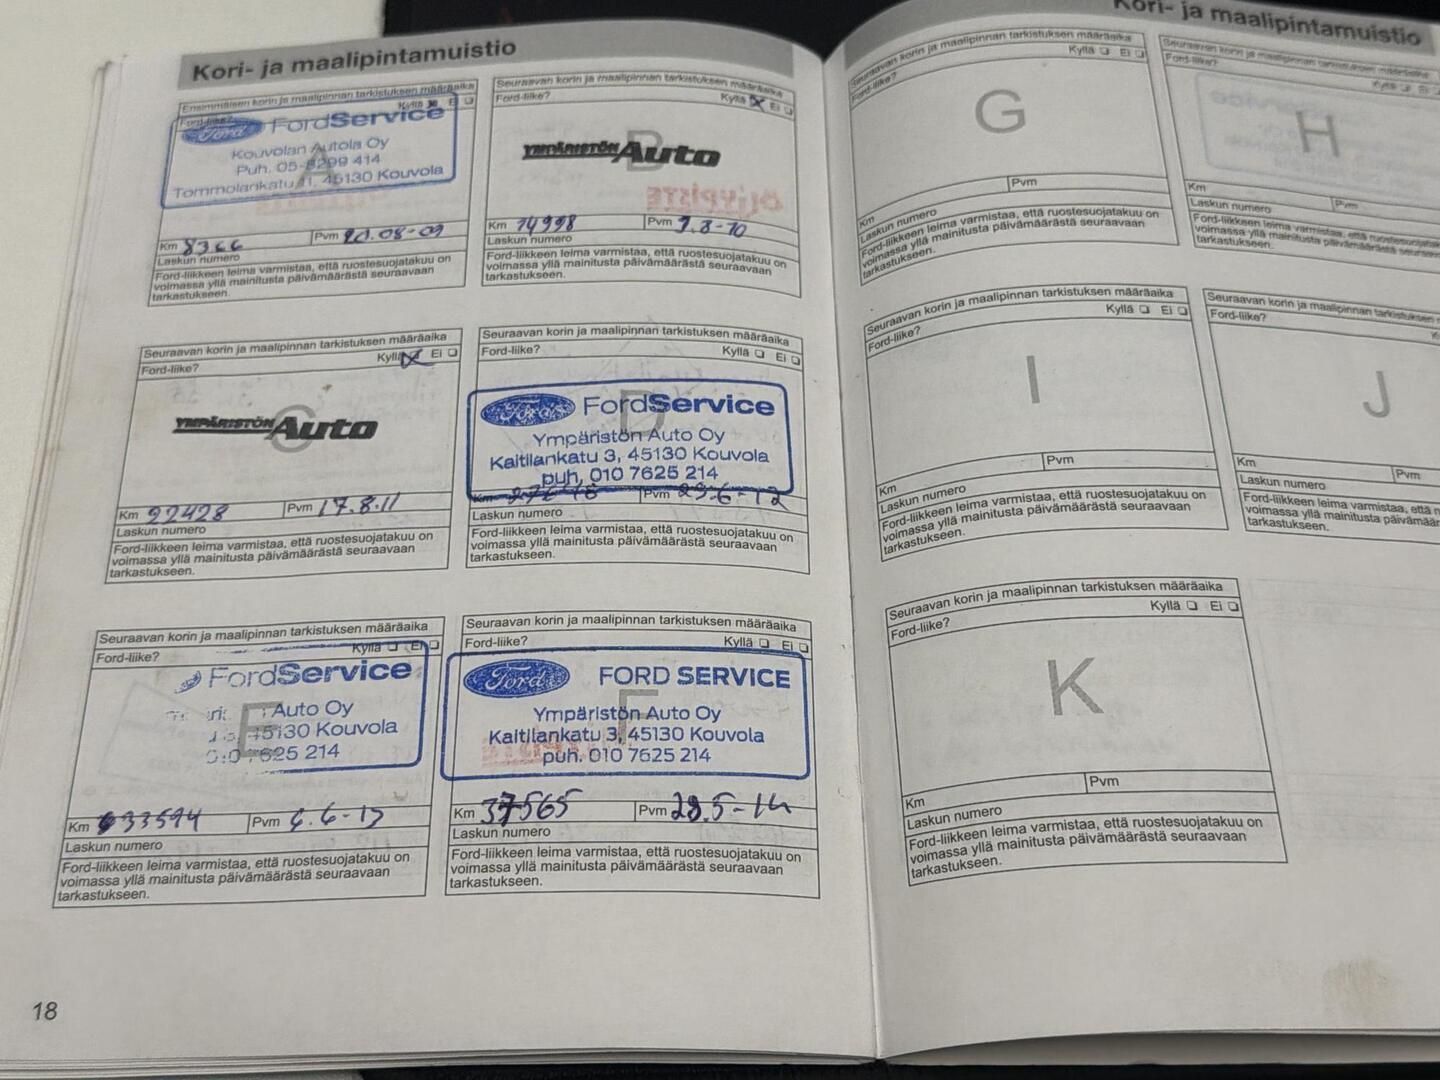 Kori- ja maalipintamuistio
Ensimmäisen korin ja maalipinnan tarkistuksen määräaika
Ford-liike? Kyllä Ei
Ford FordService
Kouvolan Autola Oy
Puh. 05-8299 414
Tommolankatu 11, 45130 Kouvola
A
Km 8366 Pvm 20.08-09
Laskun numero
Ford-liikkeen leima varmistaa, että ruostesuojatakuu on
voimassa yllä mainitusta päivämäärästä seuraavaan
tarkastukseen.
Seuraavan korin ja maalipinnan tarkistuksen määräaika
Ford-liike? Kyllä Ei
B
YMPÄRISTÖN Auto
Km 14998 Pvm 9.8-10
Laskun numero
Ford-liikkeen leima varmistaa, että ruostesuojatakuu on
voimassa yllä mainitusta päivämäärästä seuraavaan
tarkastukseen.
Seuraavan korin ja maalipinnan tarkistuksen määräaika
Ford-liike? Kyllä Ei
C
YMPÄRISTÖN Auto
Km 22428 Pvm 17.8.11
Laskun numero
Ford-liikkeen leima varmistaa, että ruostesuojatakuu on
voimassa yllä mainitusta päivämäärästä seuraavaan
tarkastukseen.
Seuraavan korin ja maalipinnan tarkistuksen määräaika
Ford-liike? Kyllä Ei
D
Ford FordService
Ympäristön Auto Oy
Kaitilankatu 3, 45130 Kouvola
puh. 010 7625 214
Km Pvm 29.6-12
Laskun numero
Ford-liikkeen leima varmistaa, että ruostesuojatakuu on
voimassa yllä mainitusta päivämäärästä seuraavaan
tarkastukseen.
Seuraavan korin ja maalipinnan tarkistuksen määräaika
Ford-liike? Kyllä Ei
E
FordService
Auto Oy
45130 Kouvola
010 7625 214
Km 33594 Pvm 6.6-13
Laskun numero
Ford-liikkeen leima varmistaa, että ruostesuojatakuu on
voimassa yllä mainitusta päivämäärästä seuraavaan
tarkastukseen.
Seuraavan korin ja maalipinnan tarkistuksen määräaika
Ford-liike? Kyllä Ei
F
Ford FORD SERVICE
Ympäristön Auto Oy
Kaitilankatu 3, 45130 Kouvola
puh. 010 7625 214
Km 37565 Pvm 28.5-14
Laskun numero
Ford-liikkeen leima varmistaa, että ruostesuojatakuu on
voimassa yllä mainitusta päivämäärästä seuraavaan
tarkastukseen.
18
Kori- ja maalipintamuistio
Seuraavan korin ja maalipinnan tarkistuksen määräaika
Ford-liike? Kyllä Ei
G
Km Pvm
Laskun numero
Ford-liikkeen leima varmistaa, että ruostesuojatakuu on
voimassa yllä mainitusta päivämäärästä seuraavaan
tarkastukseen.
Seuraavan korin ja maalipinnan tarkistuksen määräaika
Ford-liike? Kyllä Ei
H
Km Pvm
Laskun numero
Ford-liikkeen leima varmistaa, että ruostesuojatakuu
voimassa yllä mainitusta päivämäärästä
tarkastukseen.
Seuraavan korin ja maalipinnan tarkistuksen määräaika
Ford-liike? Kyllä Ei
I
Km Pvm
Laskun numero
Ford-liikkeen leima varmistaa, että ruostesuojatakuu on
voimassa yllä mainitusta päivämäärästä seuraavaan
tarkastukseen.
Seuraavan korin ja maalipinnan tarkistuksen
Ford-liike?
J
Km Pvm
Laskun numero
Ford-liikkeen leima varmistaa, että
voimassa yllä mainitusta
tarkastukseen.
Seuraavan korin ja maalipinnan tarkistuksen määräaika
Ford-liike? Kyllä Ei
K
Km Pvm
Laskun numero
Ford-liikkeen leima varmistaa, että ruostesuojatakuu on
voimassa yllä mainitusta päivämäärästä seuraavaan
tarkastukseen.